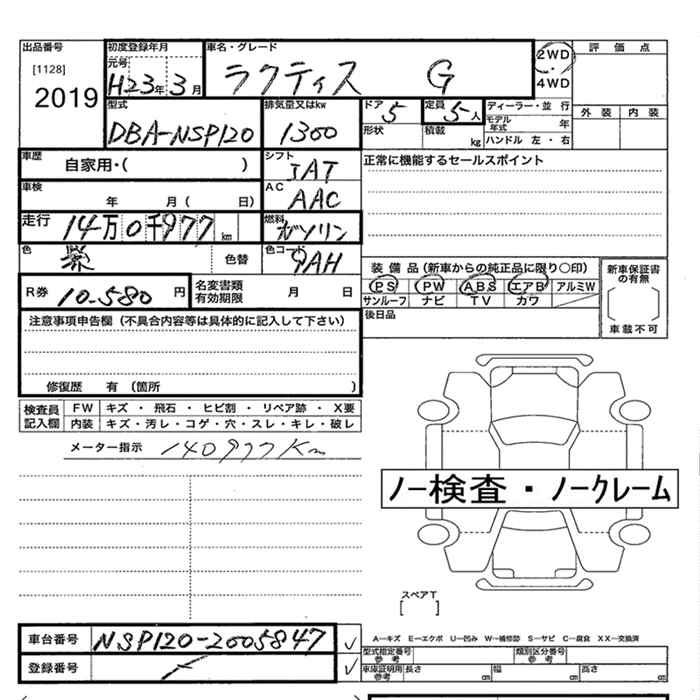 出品番号 初度登録年月 車名・グレード 2WD 評価点
[1128] 元号 ラクティス G ・
2019 H23年 3月 4WD
型式 排気量又はkw ドア 5 定員 5人 ディーラー・並 行 外装 内装
DBA-NSP120 1300 形状 積載 kg モデル年式 年
ハンドル 左・右
車歴 自家用・( ) シフト IAT 正常に機能するセールスポイント
車検 年 月( 日) AC AAC
走行 14万0千977km 燃料 ガソリン
色 紫 色替 色コード 9AH
装備品(新車からの純正品に限り○印) 新車保証書の有無
R券 10-580円 名変書類有効期限 月 日 PS PW ABS エアB アルミW
サンルーフ ナビ TV カワ
[ ]
注意事項申告欄(不具合内容等は具体的に記入して下さい) 後日品 車載不可
修復歴 有(箇所 )
検査員記入欄 FW キズ・飛石・ヒビ割・リペア跡・X要
内装 キズ・汚レ・コゲ・穴・スレ・キレ・破レ
メーター指示 140977Km
ノー検査・ノークレーム
スペアT
[ ]
車台番号 NSP120-2005847 ✓ A―キズ E―エクボ U―凹み W―補修跡 S―サビ C―腐食 XX―交換済
型式指定番号 参考 類別区分番号 参考
登録番号 ✓ 車庫証明用参考 長さ cm 幅 cm 高さ cm